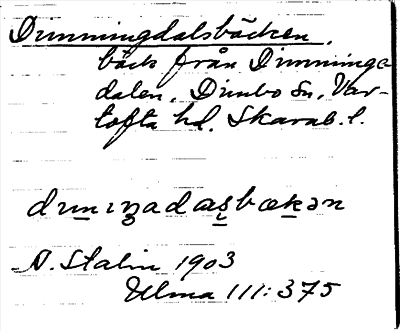 Dimmingdalsbäcken,
bäck från Dimminge-
dalen, Dimbo Sn, Var-
tofta hd. Skarab. l.
dɪmɪŋadaʂbækən
D. Stalin 1903
Ulma 111:375